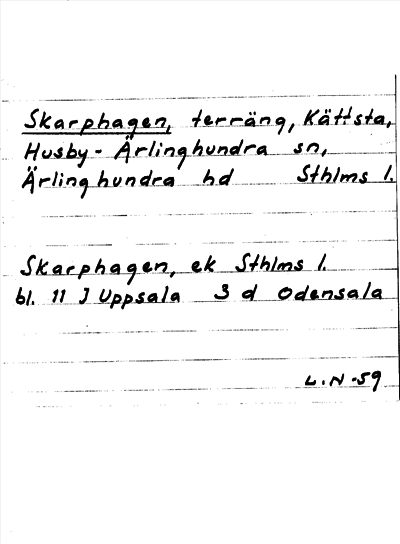 Skarphagen, terräng, Kättsta,
Husby-Ärlinghundra sn,
Ärlinghundra hd Sthlms l.
Skarphagen, ek Sthlms l.
bl. 11 J Uppsala 3 d Odensala
L.N-59